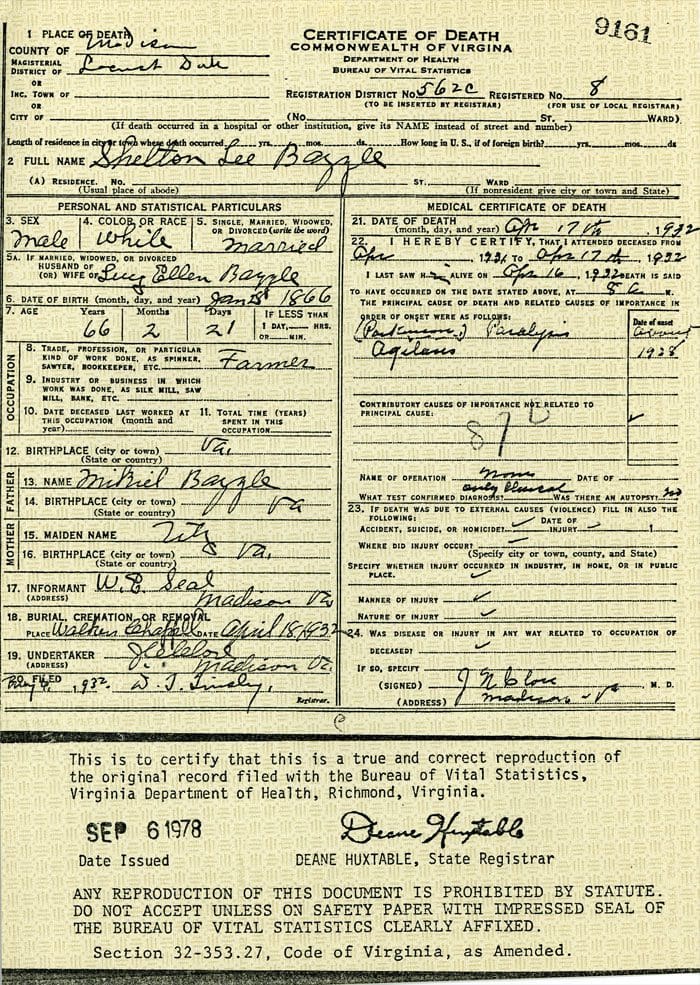 9161
CERTIFICATE OF DEATH
COMMONWEALTH OF VIRGINIA
DEPARTMENT OF HEALTH
BUREAU OF VITAL STATISTICS
1 PLACE OF DEATH
COUNTY OF Madison
MAGISTERIAL DISTRICT OF Locust Dale
OR
INC. TOWN OF
OR
CITY OF
REGISTRATION DISTRICT No. 562C REGISTERED No. 8
(TO BE INSERTED BY REGISTRAR) (FOR USE OF LOCAL REGISTRAR)
(No. ST. WARD)
(If death occurred in a hospital or other institution, give its NAME instead of street and number)
Length of residence in city or town where death occurred yrs. mos. ds. How long in U. S., if of foreign birth? yrs. mos. ds
2 FULL NAME Shelton Lee Bazzle
(A) RESIDENCE. No. ST. WARD
(Usual place of abode) (If nonresident give city or town and State)
PERSONAL AND STATISTICAL PARTICULARS
3. SEX Male
4. COLOR OR RACE White
5. SINGLE, MARRIED, WIDOWED, OR DIVORCED (write the word) married
5A. IF MARRIED, WIDOWED, OR DIVORCED
HUSBAND OF
(OR) WIFE OF Lucy Ellen Bazzle
6. DATE OF BIRTH (month, day, and year) Jan 1866
7. AGE Years Months Days IF LESS THAN
66 2 21 1 DAY, HRS.
OR MIN.
OCCUPATION
8. TRADE, PROFESSION, OR PARTICULAR
KIND OF WORK DONE, AS SPINNER,
SAWYER, BOOKKEEPER, ETC. Farmer
9. INDUSTRY OR BUSINESS IN WHICH
WORK WAS DONE, AS SILK MILL, SAW
MILL, BANK, ETC.
10. DATE DECEASED LAST WORKED AT
THIS OCCUPATION (month and
year)
11. TOTAL TIME (YEARS)
SPENT IN THIS
OCCUPATION
12. BIRTHPLACE (city or town) Va.
(State or country)
FATHER
13. NAME Bazzle
14. BIRTHPLACE (city or town) Va
(State or country)
MOTHER
15. MAIDEN NAME
16. BIRTHPLACE (city or town) Va.
(State or country)
17. INFORMANT W.E. Seal
(ADDRESS) Madison Va
18. BURIAL, CREMATION, OR REMOVAL
PLACE Chapel DATE April 18, 1932
19. UNDERTAKER
(ADDRESS) Madison Va.
20. FILED 1932. D. T. Tinsley,
Registrar.
MEDICAL CERTIFICATE OF DEATH
21. DATE OF DEATH
(month, day, and year) Apr 17th, 1932
22. I HEREBY CERTIFY, THAT I ATTENDED DECEASED FROM
Apr, TO Apr 17th, 1932
I LAST SAW H ALIVE ON Apr 16, 1932 DEATH IS SAID
TO HAVE OCCURRED ON THE DATE STATED ABOVE, AT 8 a M.
THE PRINCIPAL CAUSE OF DEATH AND RELATED CAUSES OF IMPORTANCE IN
ORDER OF ONSET WERE AS FOLLOWS:
Date of onset
(Parkinson) Paralysis About
Agitans 1928
CONTRIBUTORY CAUSES OF IMPORTANCE NOT RELATED TO
PRINCIPAL CAUSE:
87
NAME OF OPERATION None DATE OF
WHAT TEST CONFIRMED DIAGNOSIS? only Clinical WAS THERE AN AUTOPSY? no
23. IF DEATH WAS DUE TO EXTERNAL CAUSES (VIOLENCE) FILL IN ALSO THE
FOLLOWING:
ACCIDENT, SUICIDE, OR HOMICIDE? DATE OF INJURY
WHERE DID INJURY OCCUR?
(Specify city or town, county, and State)
SPECIFY WHETHER INJURY OCCURRED IN INDUSTRY, IN HOME, OR IN PUBLIC
PLACE.
MANNER OF INJURY
NATURE OF INJURY
24. WAS DISEASE OR INJURY IN ANY WAY RELATED TO OCCUPATION OF
DECEASED?
IF SO, SPECIFY
(SIGNED) M. D.
(ADDRESS) Madison Va
This is to certify that this is a true and correct reproduction of
the original record filed with the Bureau of Vital Statistics,
Virginia Department of Health, Richmond, Virginia.
SEP 6 1978
Deane Huxtable
Date Issued
DEANE HUXTABLE, State Registrar
ANY REPRODUCTION OF THIS DOCUMENT IS PROHIBITED BY STATUTE.
DO NOT ACCEPT UNLESS ON SAFETY PAPER WITH IMPRESSED SEAL OF
THE BUREAU OF VITAL STATISTICS CLEARLY AFFIXED.
Section 32-353.27, Code of Virginia, as Amended.